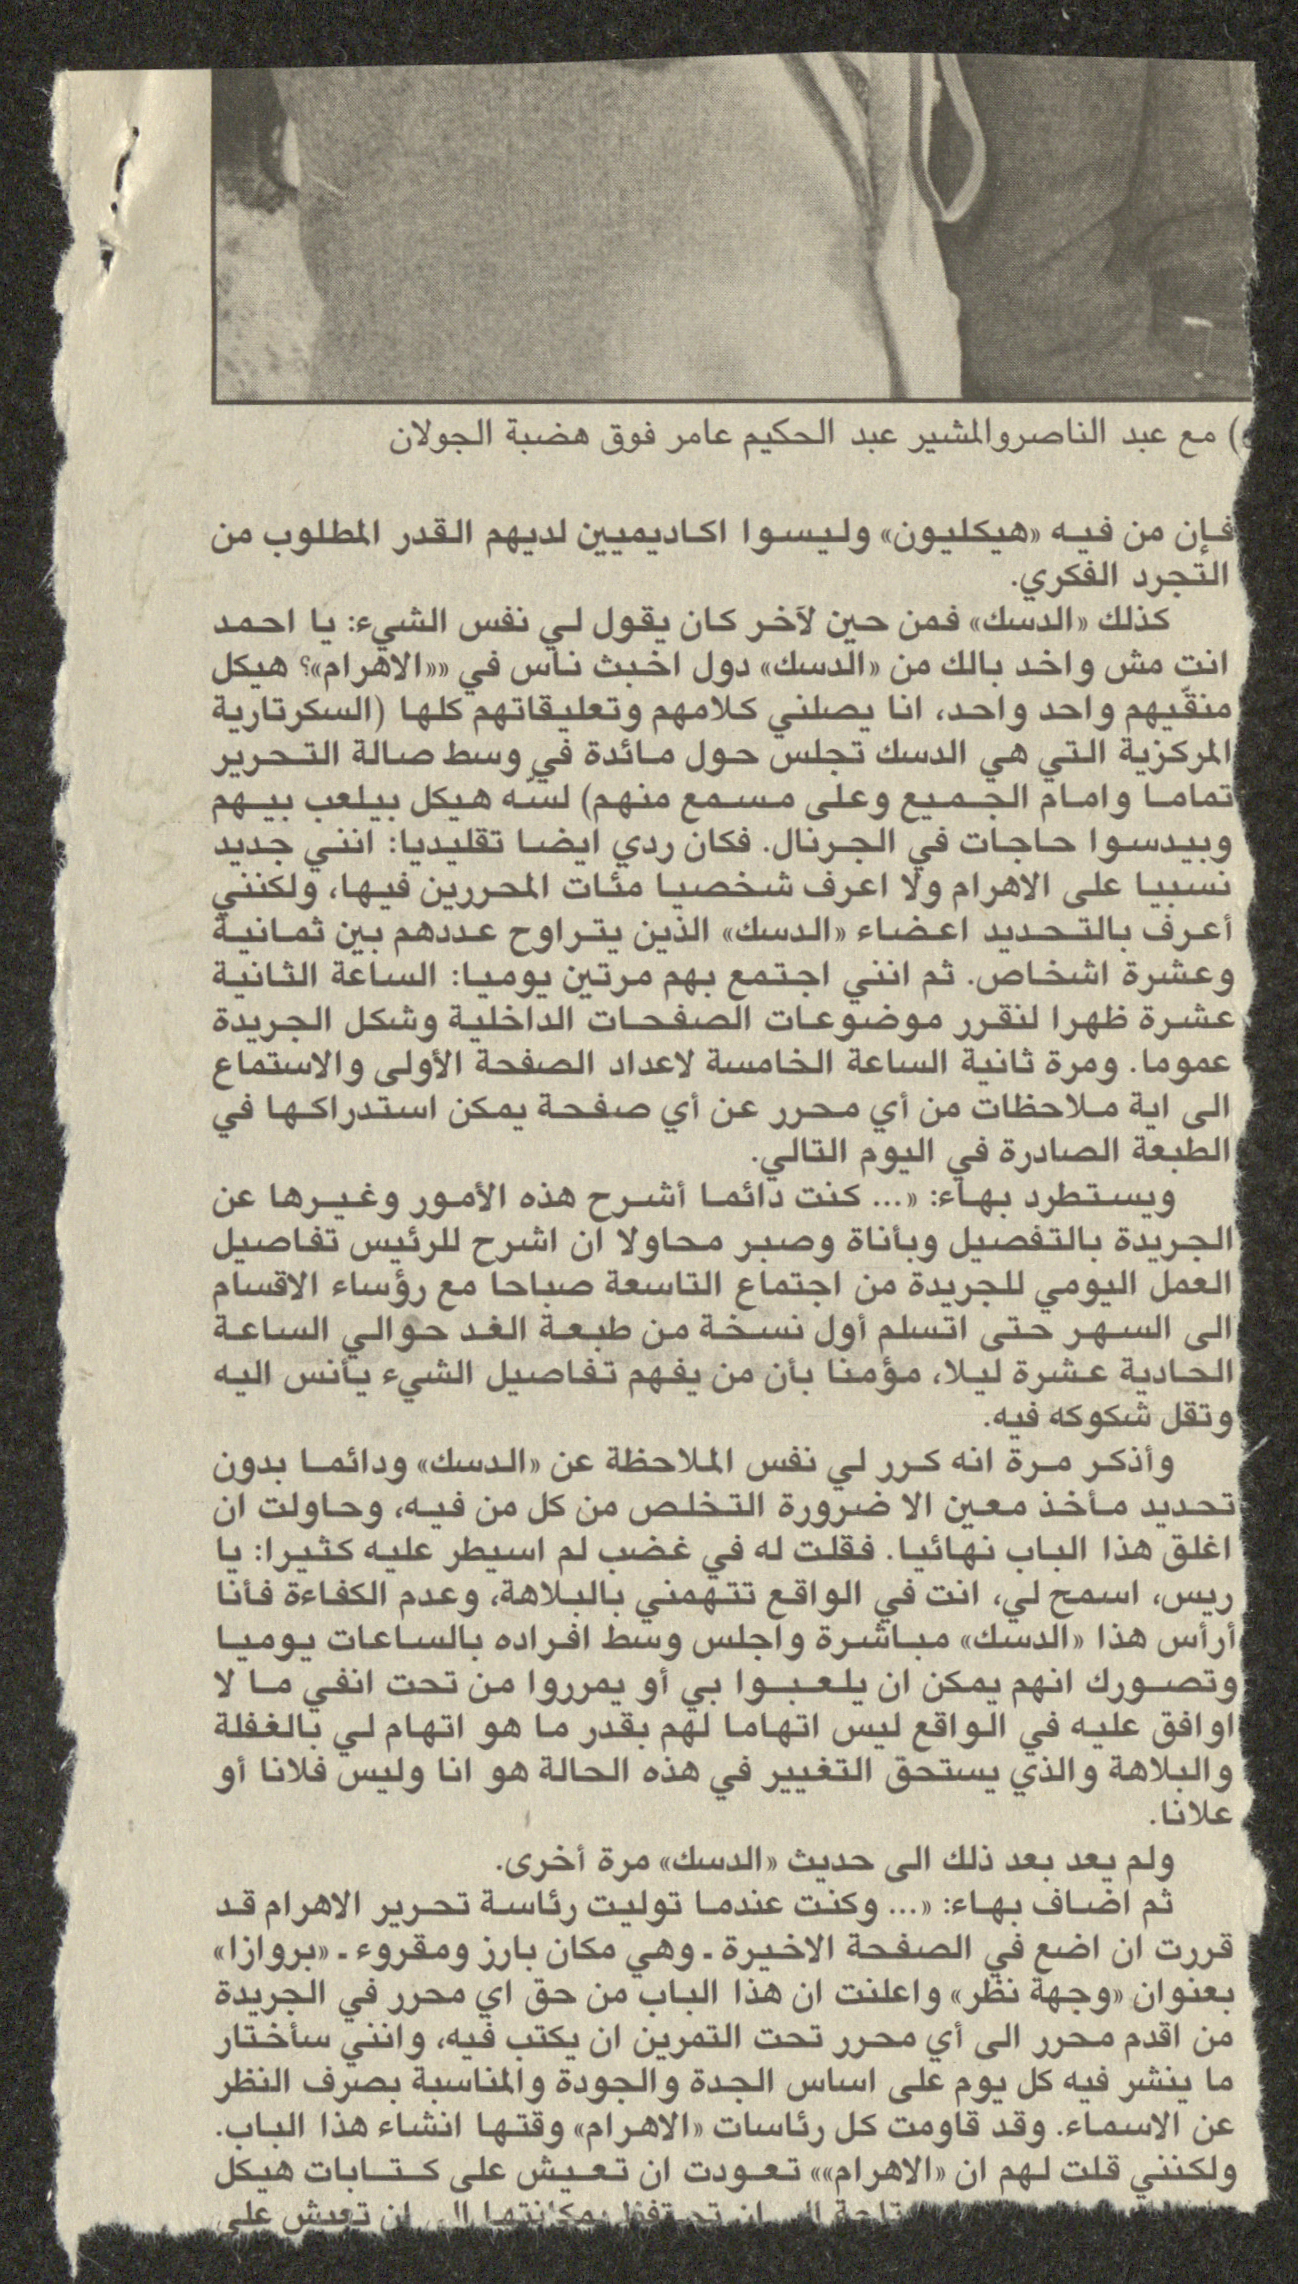 ) مع عبد الناصروالمشير عبد الحكيم عامر فوق هضبة الجولان
فإن من فيه «هيكليون» وليسوا اكاديميين لديهم القدر المطلوب من
التجرد الفكري.
كذلك «الدسك» فمن حين لآخر كان يقول لي نفس الشيء: يا احمد
انت مش واخد بالك من «الدسك» دول اخبث ناس في ««الاهرام»؟ هيكل
منقّيهم واحد واحد، انا يصلني كلامهم وتعليقاتهم كلها (السكرتارية
المركزية التي هي الدسك تجلس حول مائدة في وسط صالة التحرير
تماما وامام الجميع وعلى مسمع منهم) لسّه هيكل بيلعب بيهم
وبيدسوا حاجات في الجرنال. فكان ردي ايضا تقليديا: انني جديد
نسبيا على الاهرام ولا اعرف شخصيا مئات المحررين فيها، ولكنني
أعرف بالتحديد اعضاء «الدسك» الذين يتراوح عددهم بين ثمانية
وعشرة اشخاص. ثم انني اجتمع بهم مرتين يوميا: الساعة الثانية
عشرة ظهرا لنقرر موضوعات الصفحات الداخلية وشكل الجريدة
عموما. ومرة ثانية الساعة الخامسة لاعداد الصفحة الأولى والاستماع
الى اية ملاحظات من أي محرر عن أي صفحة يمكن استدراكها في
الطبعة الصادرة في اليوم التالي.
ويستطرد بهاء: «... كنت دائما أشرح هذه الأمور وغيرها عن
الجريدة بالتفصيل وبأناة وصبر محاولا ان اشرح للرئيس تفاصيل
العمل اليومي للجريدة من اجتماع التاسعة صباحا مع رؤساء الاقسام
الى السهر حتى اتسلم أول نسخة من طبعة الغد حوالي الساعة
الحادية عشرة ليلا، مؤمنا بأن من يفهم تفاصيل الشيء يأنس اليه
وتقل شكوكه فيه.
وأذكر مرة انه كرر لي نفس الملاحظة عن «الدسك» ودائما بدون
تحديد مأخذ معين الا ضرورة التخلص من كل من فيه، وحاولت ان
اغلق هذا الباب نهائيا. فقلت له في غضب لم اسيطر عليه كثيرا: يا
ريس، اسمح لي، انت في الواقع تتهمني بالبلاهة، وعدم الكفاءة فأنا
أرأس هذا «الدسك» مباشرة واجلس وسط افراده بالساعات يوميا
وتصورك انهم يمكن ان يلعبوا بي أو يمرروا من تحت انفي ما لا
اوافق عليه في الواقع ليس اتهاما لهم بقدر ما هو اتهام لي بالغفلة
والبلاهة والذي يستحق التغيير في هذه الحالة هو انا وليس فلانا أو
علانا.
ولم يعد بعد ذلك الى حديث «الدسك» مرة أخرى.
ثم اضاف بهاء: «... وكنت عندما توليت رئاسة تحرير الاهرام قد
قررت ان اضع في الصفحة الاخيرة ـ وهي مكان بارز ومقروء ـ «بروازا»
بعنوان «وجهة نظر» واعلنت ان هذا الباب من حق اي محرر في الجريدة
من اقدم محرر الى أي محرر تحت التمرين ان يكتب فيه، وانني سأختار
ما ينشر فيه كل يوم على اساس الجدة والجودة والمناسبة بصرف النظر
عن الاسماء. وقد قاومت كل رئاسات «الاهرام» وقتها انشاء هذا الباب.
ولكنني قلت لهم ان «الاهرام»» تعودت ان تعيش على كتابات هيكل
ان تعيش على